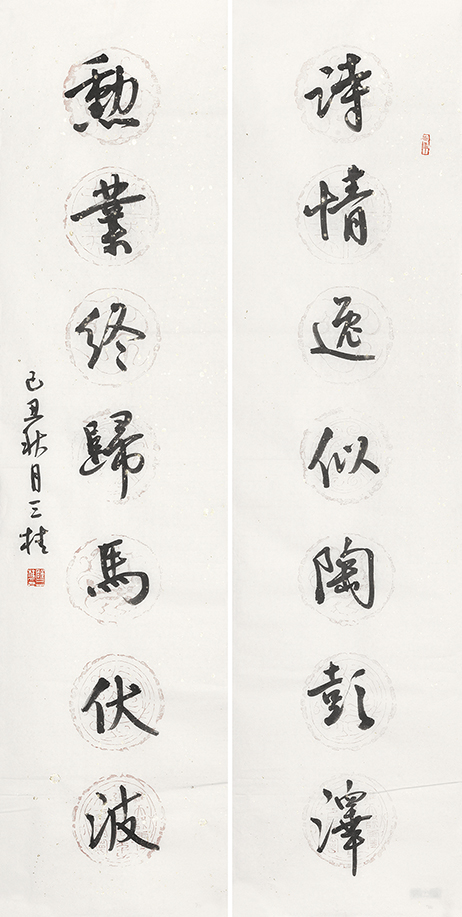 詩情逸似陶彭澤
勳業終歸馬伏波
己丑秋月三槐